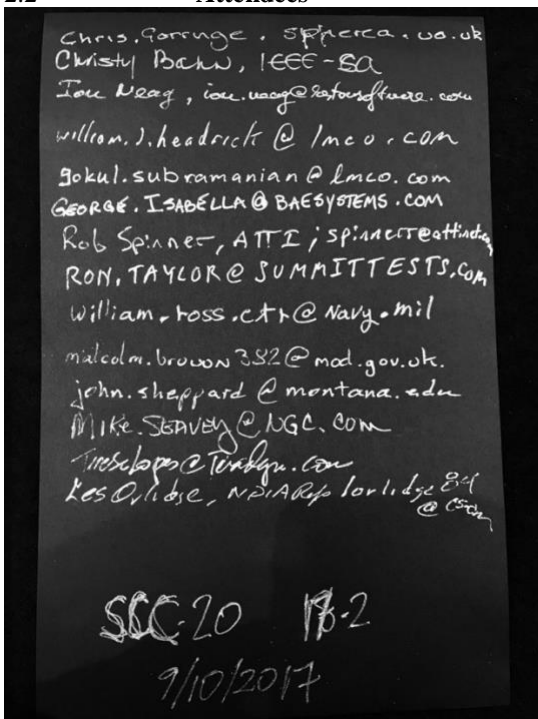 2.2 Attendees
Chris.Gorringe.spherea.uo.uk
Christy Bahn, IEEE-SA
Ion Neag, ion.neag@
william.J.headrick@lmco.com
gokul.subramanian@lmco.com
GEORGE.ISABELLA@BAESYSTEMS.COM
Rob Spinner, ATTI;
RON.TAYLOR@SUMMITTESTS.COM
william.ross.ctr@navy.mil
malcolm.brown382@mod.gov.uk.
john.sheppard@montana.edu
MIKE.SEAVEY@NGC.COM
Les Orlidge, NDIA Rep lorlidge84
SCC-20
9/10/2017